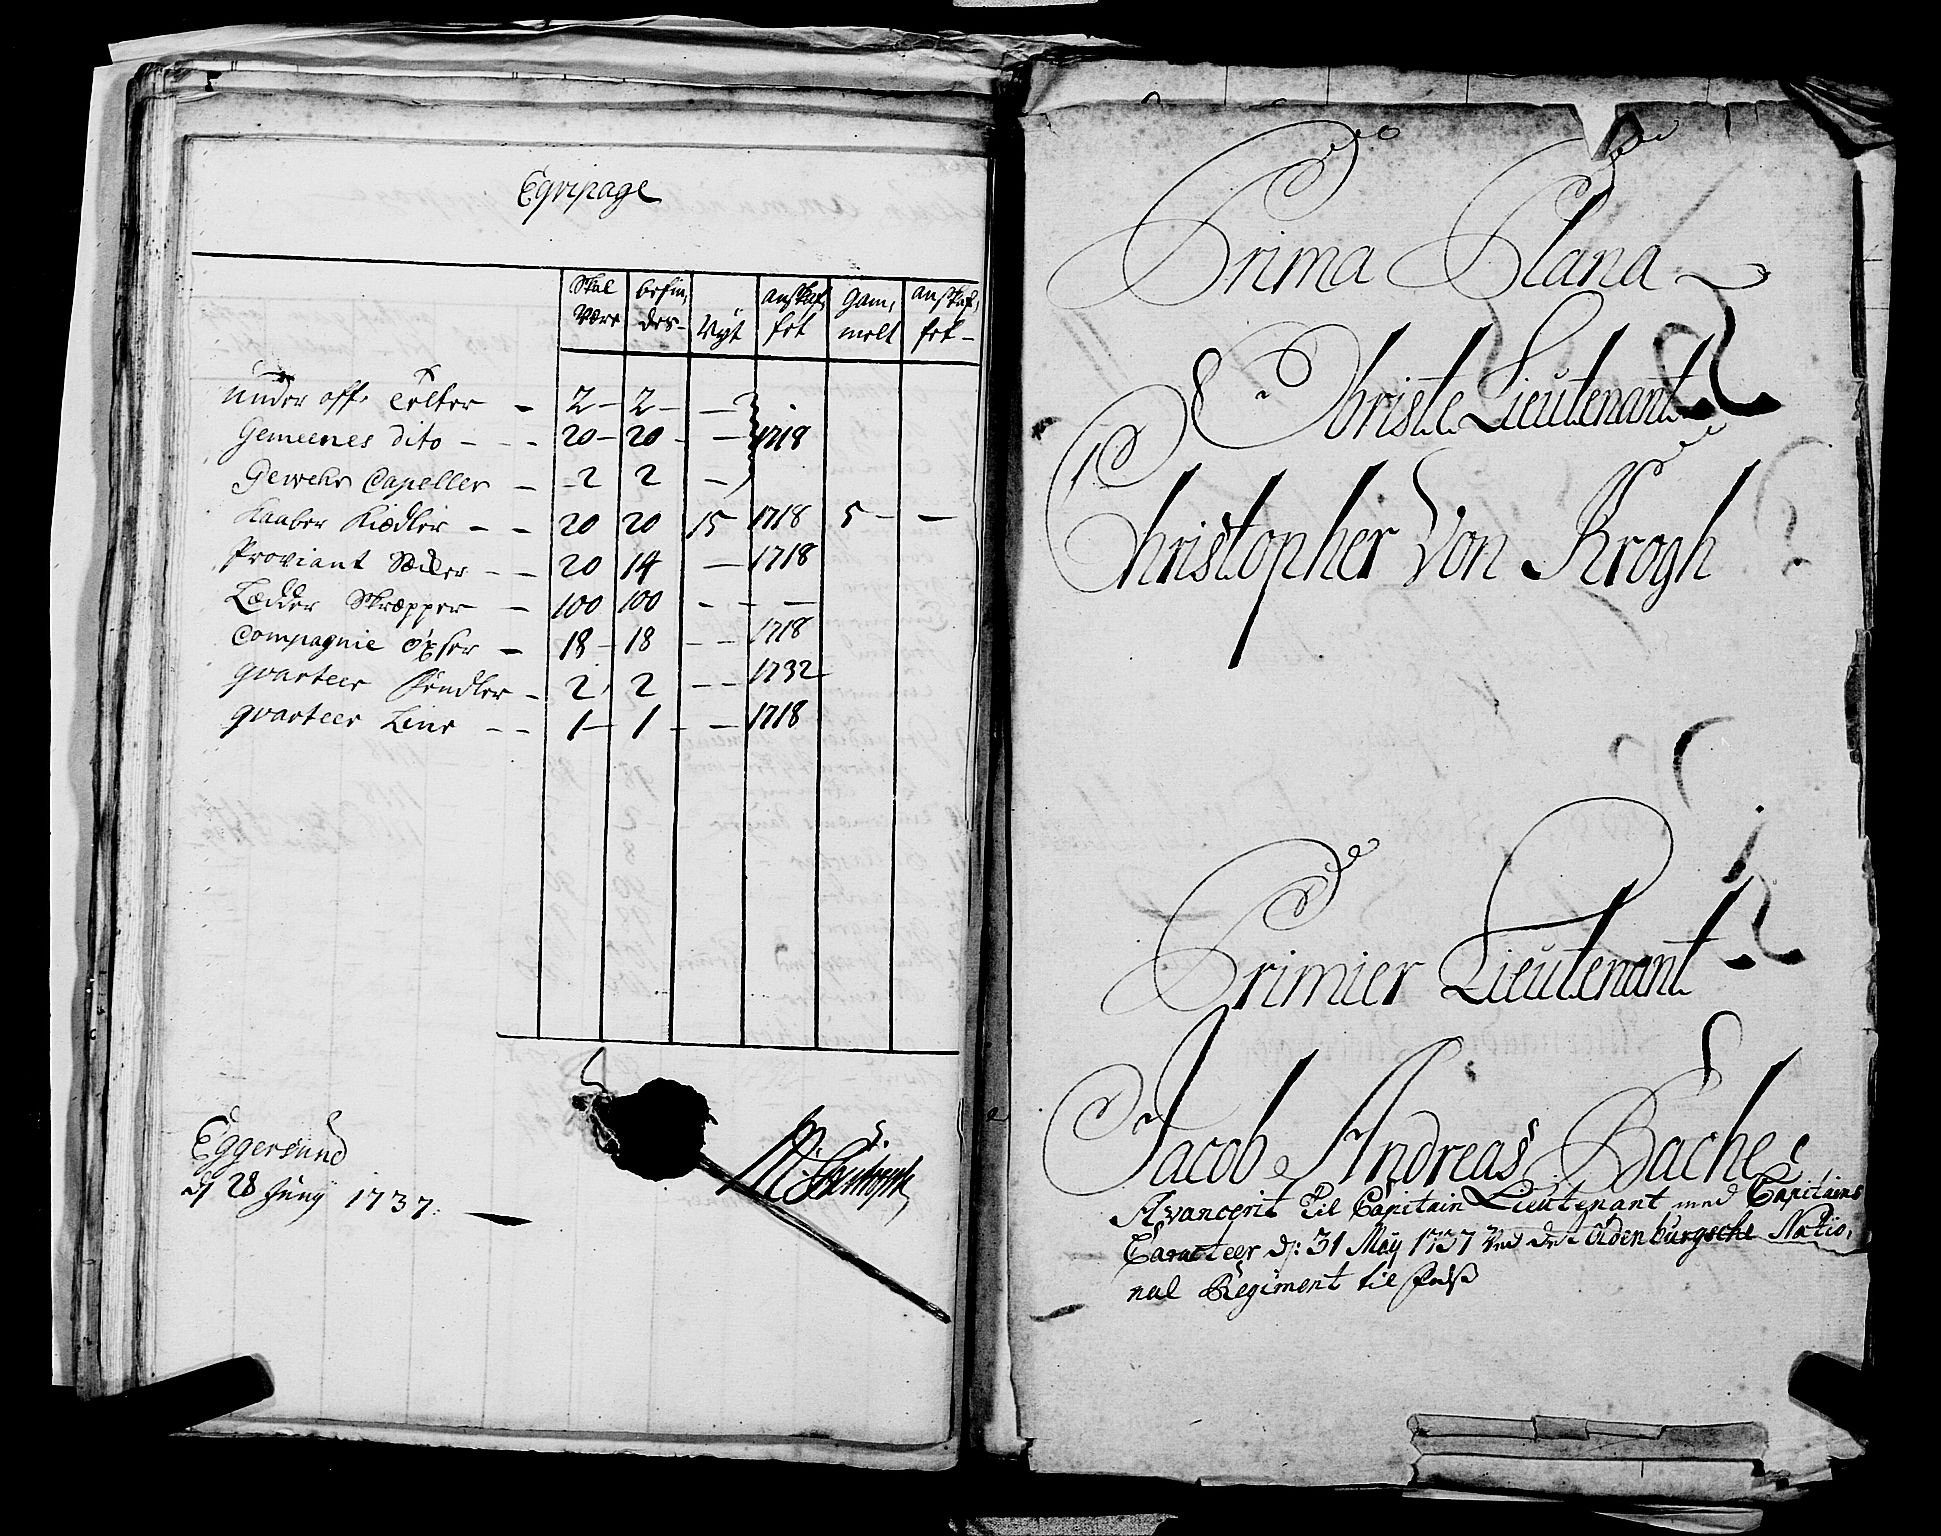 Eqvipage
Skal være | befin, des- | Nÿt | anskaf, fet | gam, melt | anskaf, fet -
Under off. Telter - 2 - 2 - -
Gemeenes dito - - - 20 - 20 - - 1718
Gewehr Capeller - 2 2 -
Kaaber Kiedler - - 20 20 15 1718 5 - -
Proviant Sæcker - - 20 14 - 1718
Lædder Skræpper - 100 100 - - -
Compagnie Öxser - 18 - 18 - - 1718
qvarteer - 2 2 - - 1732
qvarteer Line - - 1 - 1 - - 1718
Eggersund
d 28 Junÿ 1737.
Prima Plana
Obriste Lieutenant
Christopher Von Krogh
Primier Lieutenant
Jacob Andreas Bache
Avancerit Til Capitain Lieutenant med Capitains
Caracteer d: 31 Maÿ 1737 Ved det Oldenburgsche Natio,
nal Regiment til